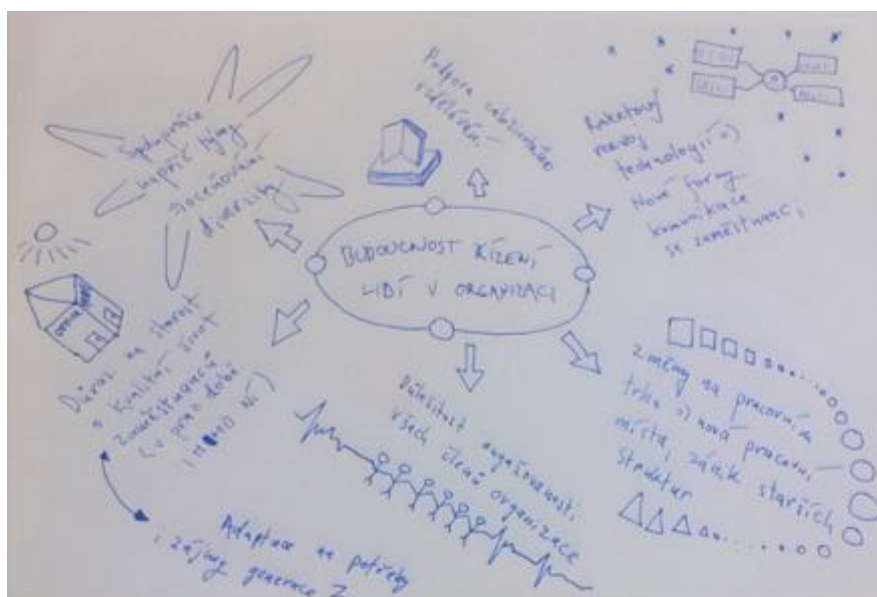 BUDOUCNOST ŘÍZENÍ
LIDÍ V ORGANIZACI
Podpora celoživotního
vzdělávání
Raketový
rozvoj
technologií =)
Nové formy
komunikace
se zaměstnanci
změny na pracovním
trhu =) nová pracovní
místa, zánik starších
struktur
Důležitost angažovanosti
všech členů organizace
Důraz na starost
o kvalitní život
zaměstnanců
(v prac. době
i mimo ní)
Adaptace na potřeby
i zájmy generace Z
Spolupráce
napříč týmy
oceňování
diverzity